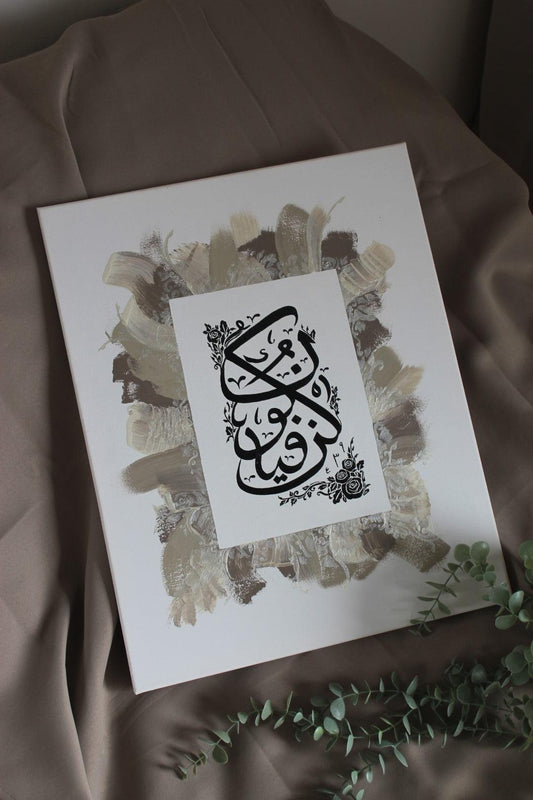 كن فيكون